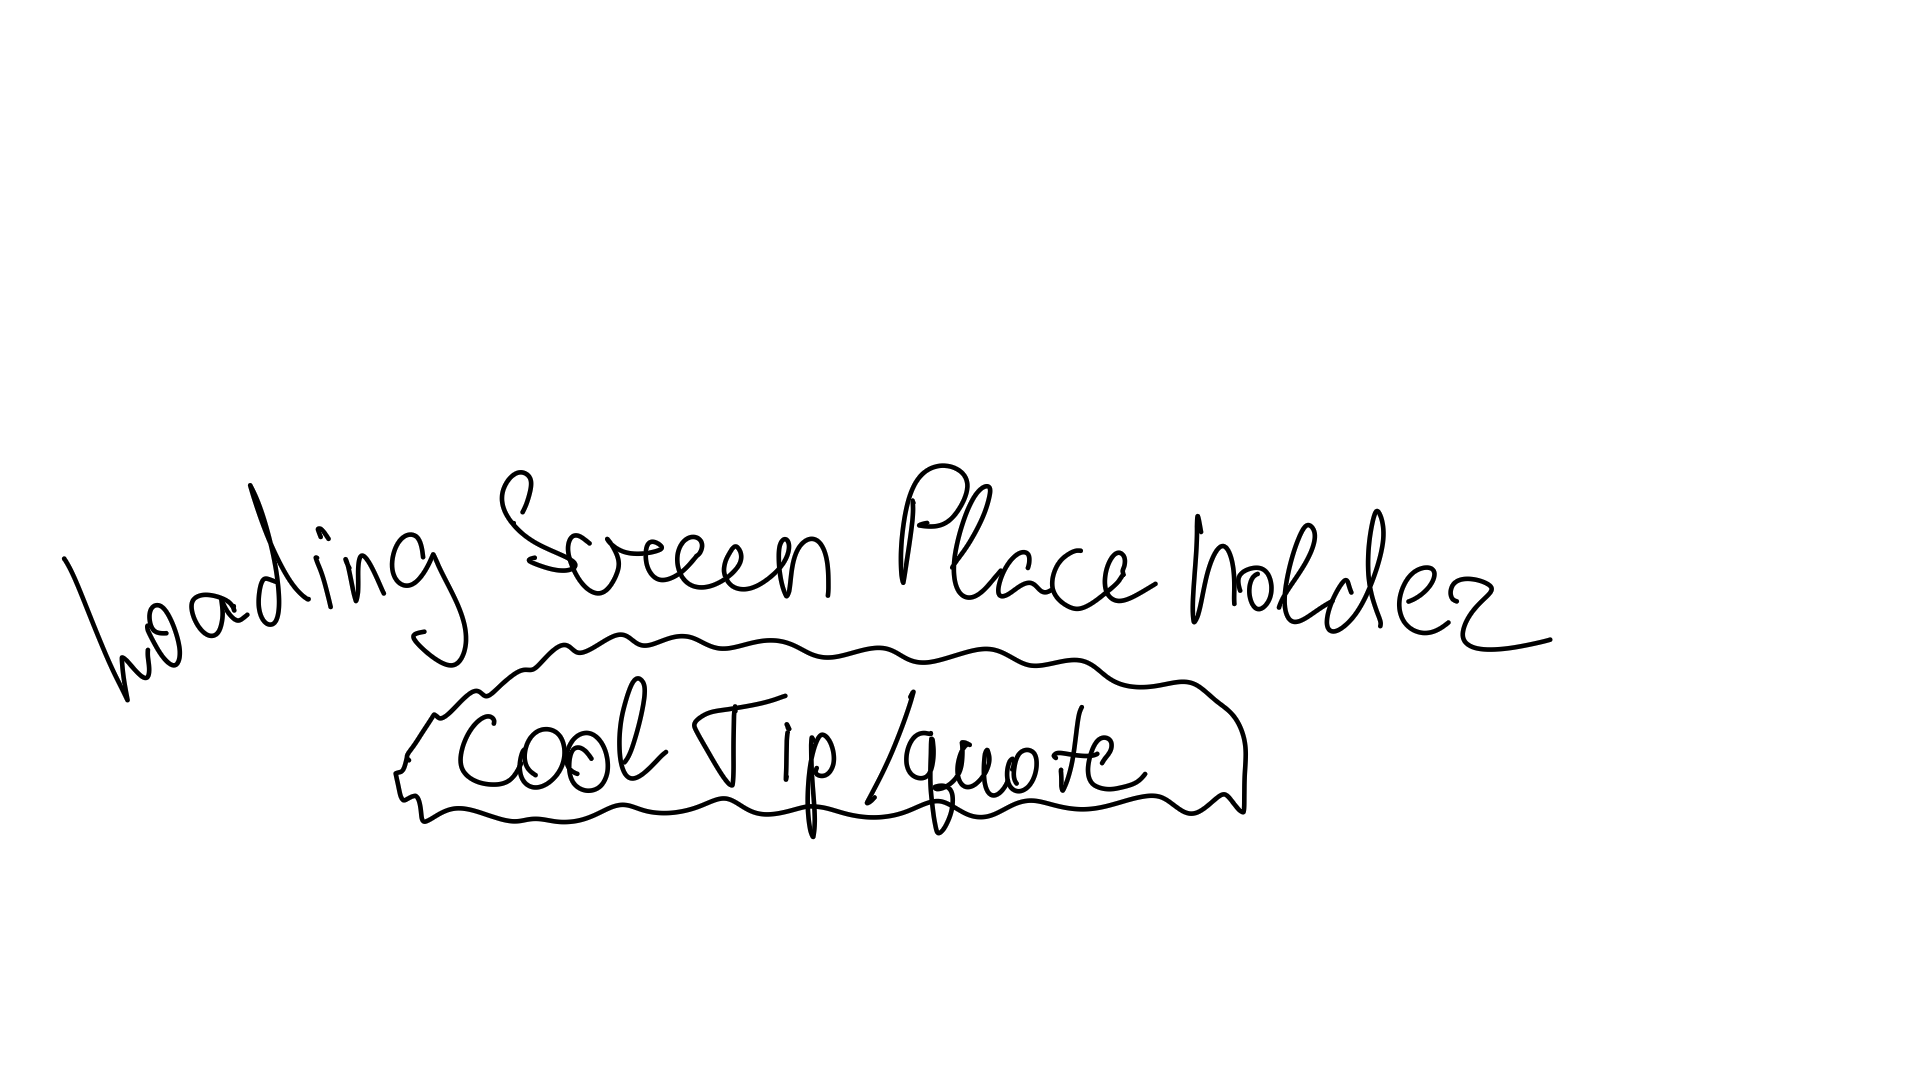 Loading Screen Place holder
Cool Tip/quote